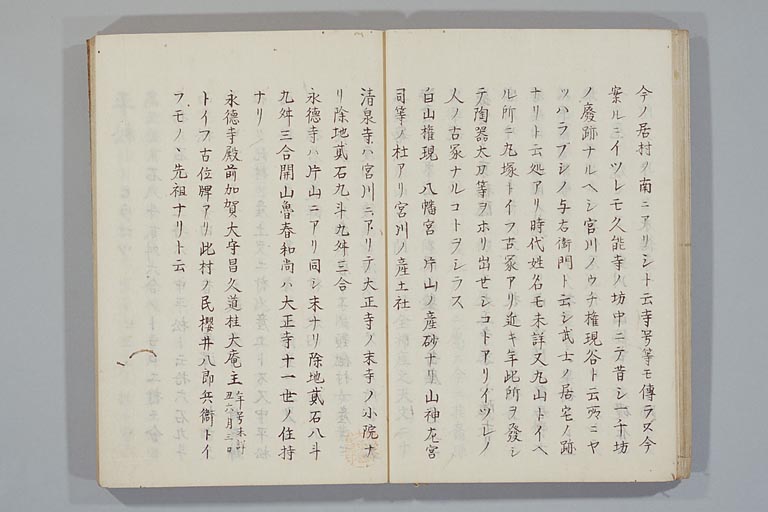 今ノ居村ヨ南ニアリシト云寺号等モ傳ラス今
案ルニイツレモ久能寺ノ坊中ニテ昔シ一千坊
ノ廢跡ナルヘシ宮川ノウチ権現谷ト云所ニヤ
ツハラブシノ与右衛門ト云シ武士ノ居宅ノ跡
ナリト云処アリ時代姓名モ未詳又丸山トイヘ
ル所ニ丸塚トイフ古冢アリ近キ年此所ヲ發シ
テ陶器太刀等ヲホリ出セシコトアリイツレノ
人ノ古冢ナルコトヲシラス
白山権現 八幡宮 片山ノ産砂ナリ山神左宮
司等ノ社アリ宮川ノ産土社
清泉寺ハ宮川ニアリテ大正寺ノ末寺ノ小院ナ
リ除地貳石九斗九舛三合
永德寺ハ片山ニアリ同シ末ナリ除地貳石八斗
九舛三合開山魯春和尚ハ大正寺十一世ノ住持
ナリ
永德寺殿前加賀大守昌久道桂大庵主 年号未詳 丑六月三日
トイフ古位牌アリ此村ノ民櫻井八郎兵衛トイ
フモノヽ先祖ナリト云